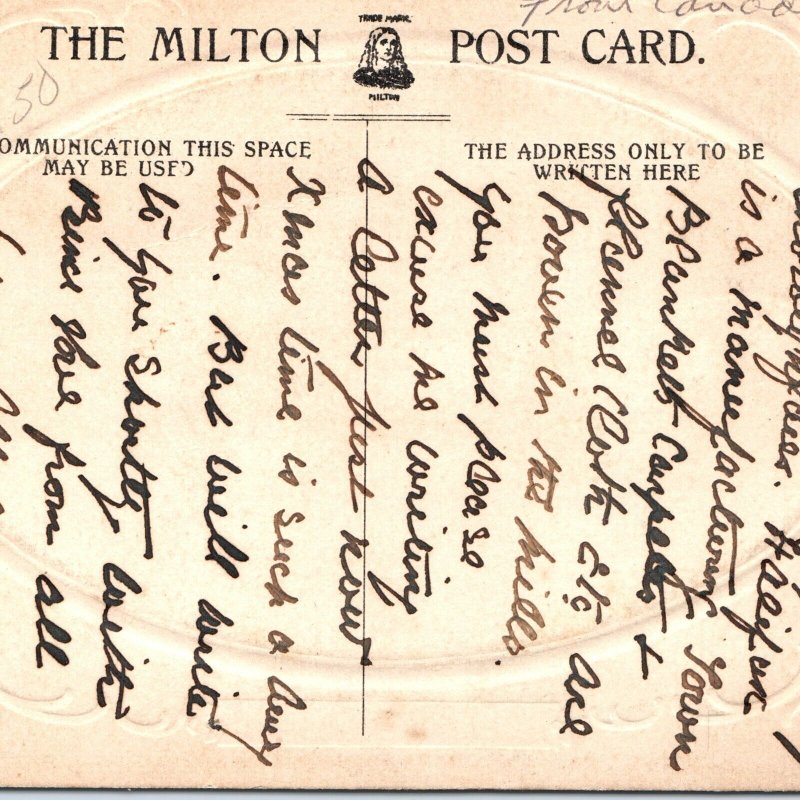 From Canada
50
THE MILTON POST CARD.
TRADE MARK
MILTON
OMMUNICATION THIS SPACE
MAY BE USED
THE ADDRESS ONLY TO BE
WRITTEN HERE
Halifax
is a Manufactoring Town
Blankets Carpets &
Flannel Cloth Etc are
Woven in the Mills.
You must please
excuse me writing
a letter just now
Xmas time is such a busy
time. But will write
to you Shortly with
Best love from all